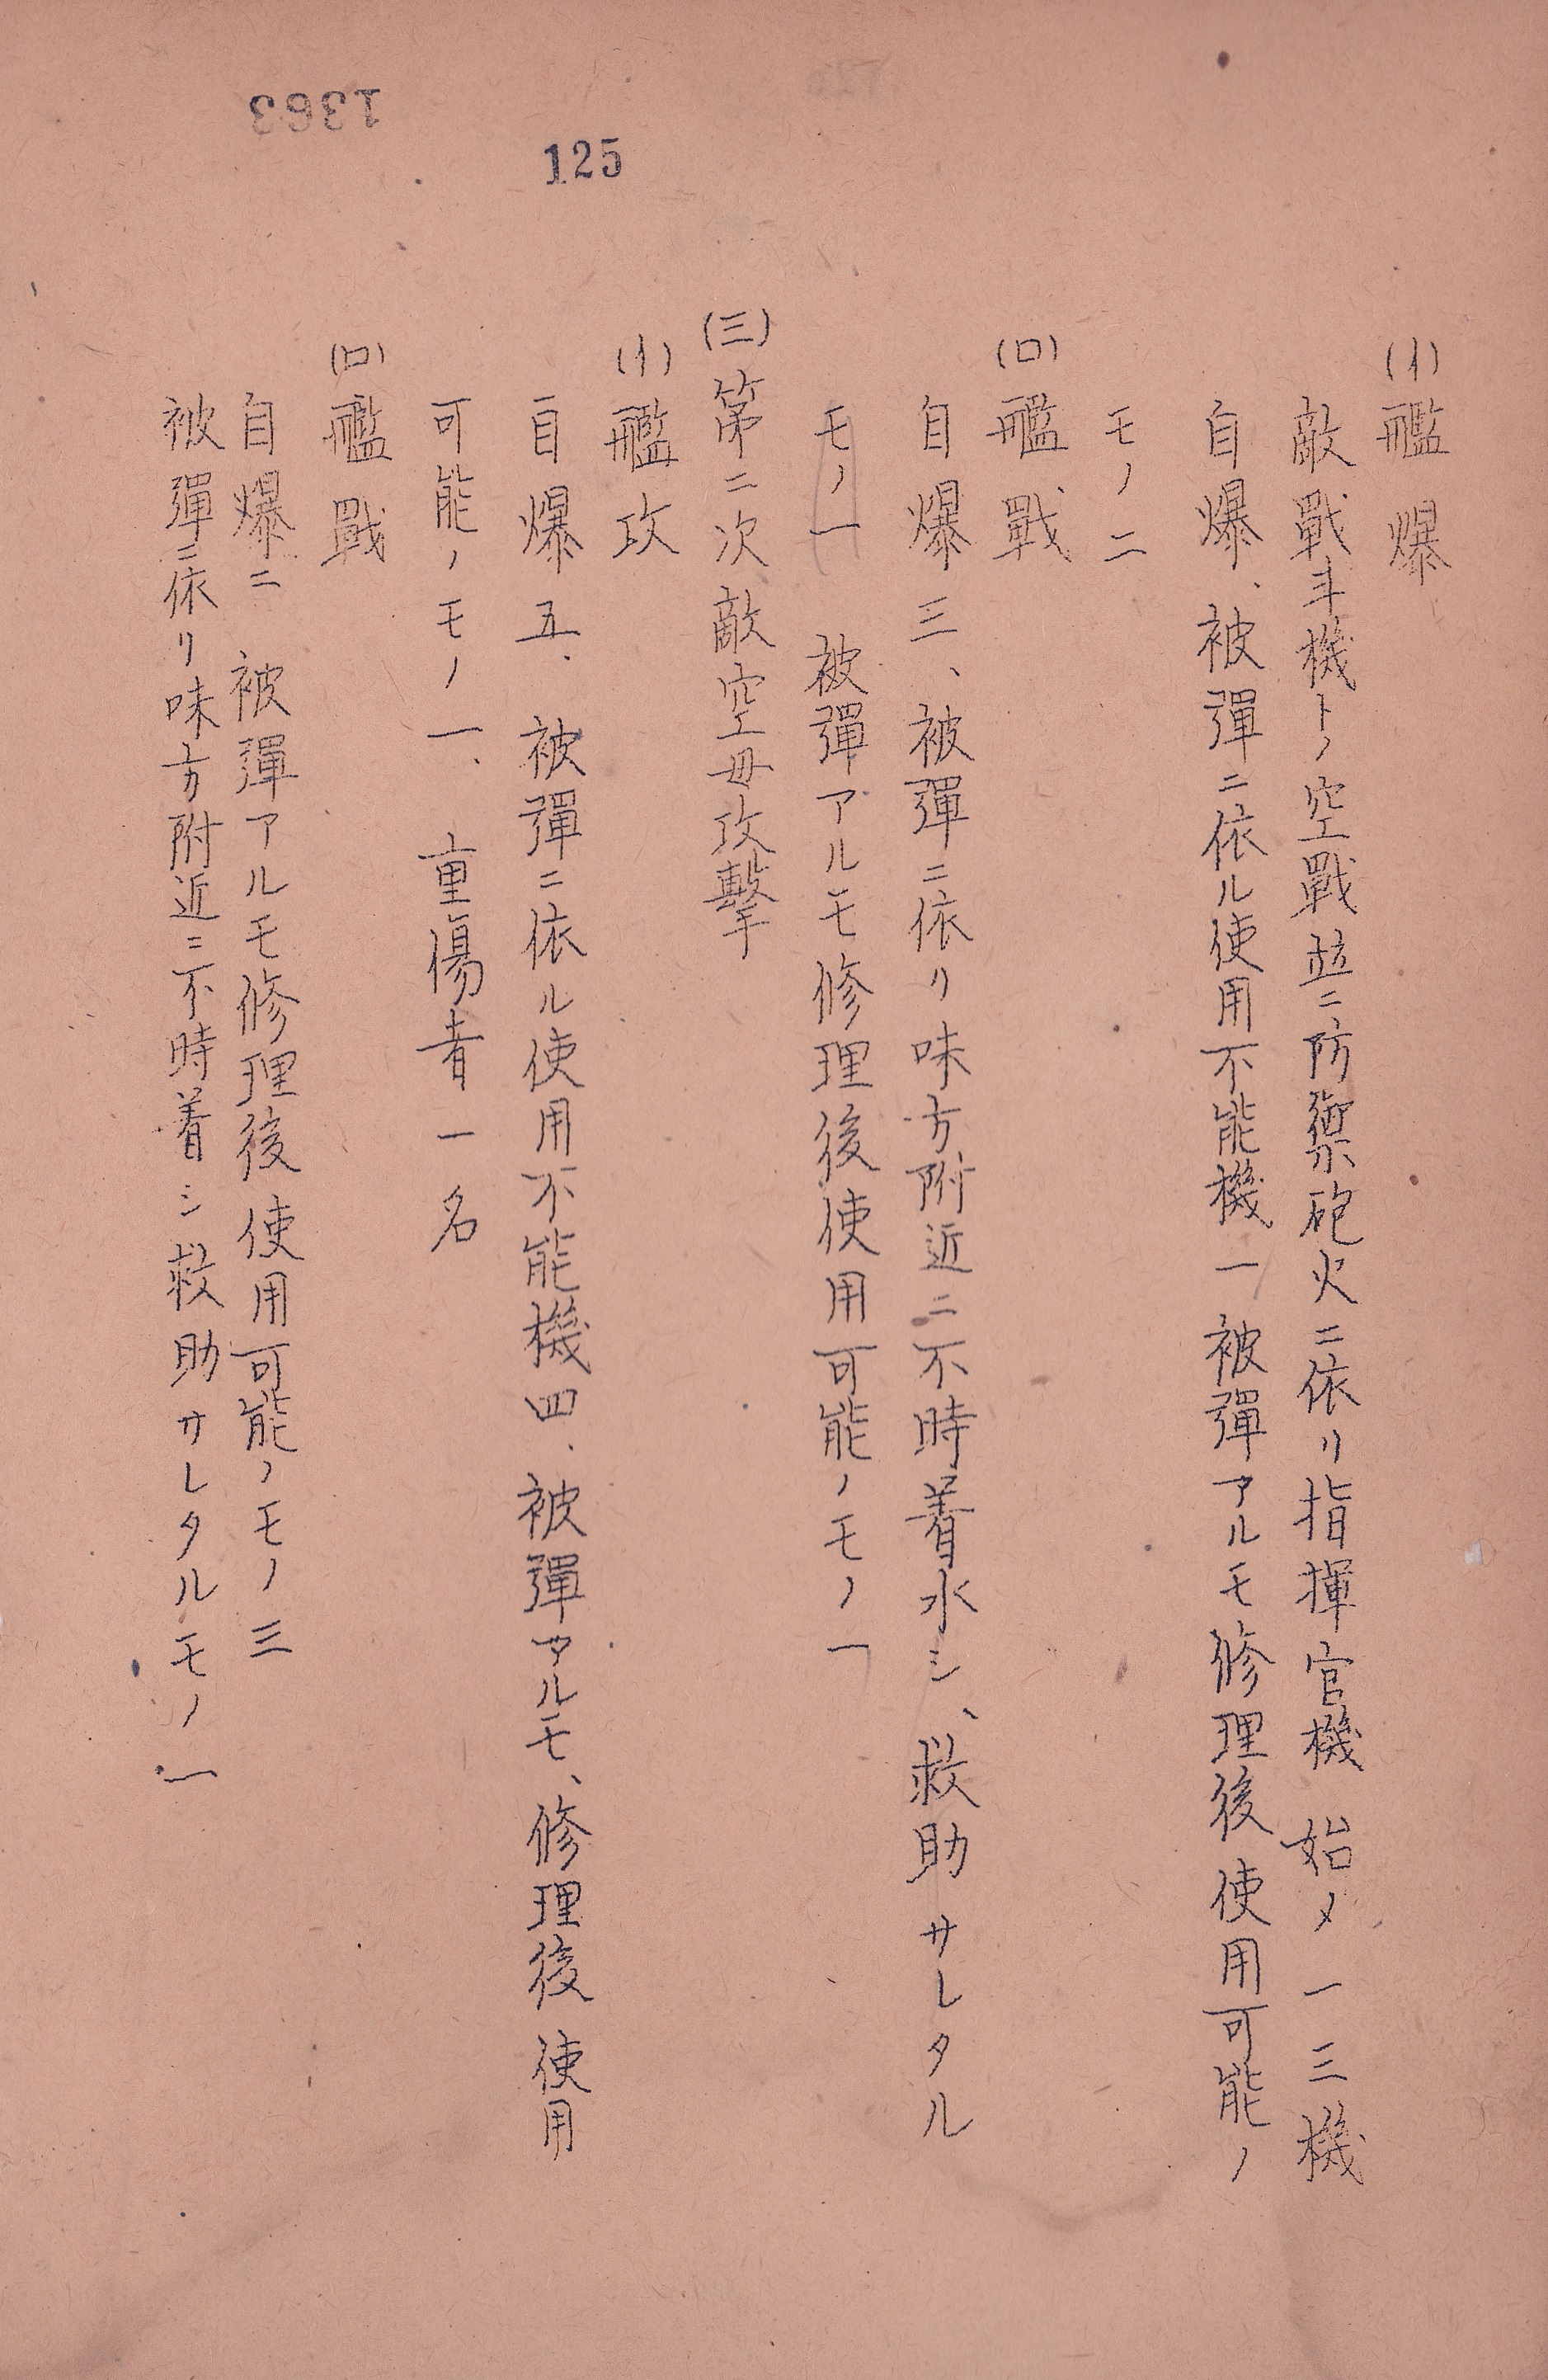 1363
125
(イ)艦爆
敵戰斗機トノ空戰並ニ防禦砲火ニ依リ指揮官機 始メ 一三機
自爆、被彈ニ依ル使用不能機一 被彈アルモ修理後使用可能ノ
モノ二
(ロ)艦戰
自爆三、被彈ニ依リ味方附近ニ不時着水シ、救助サレタル
モノ一 被彈アルモ修理後使用可能ノモノ一
(三)第二次敵空母攻擊
(イ)艦攻
自爆五、被彈ニ依ル使用不能機四、被彈アルモ、修理後使用
可能ノモノ一、 重傷者一名
(ロ)艦戰
自爆二 被彈アルモ修理後使用可能ノモノ三
被彈ニ依リ味方附近ニ不時着シ救助サレタルモノ一